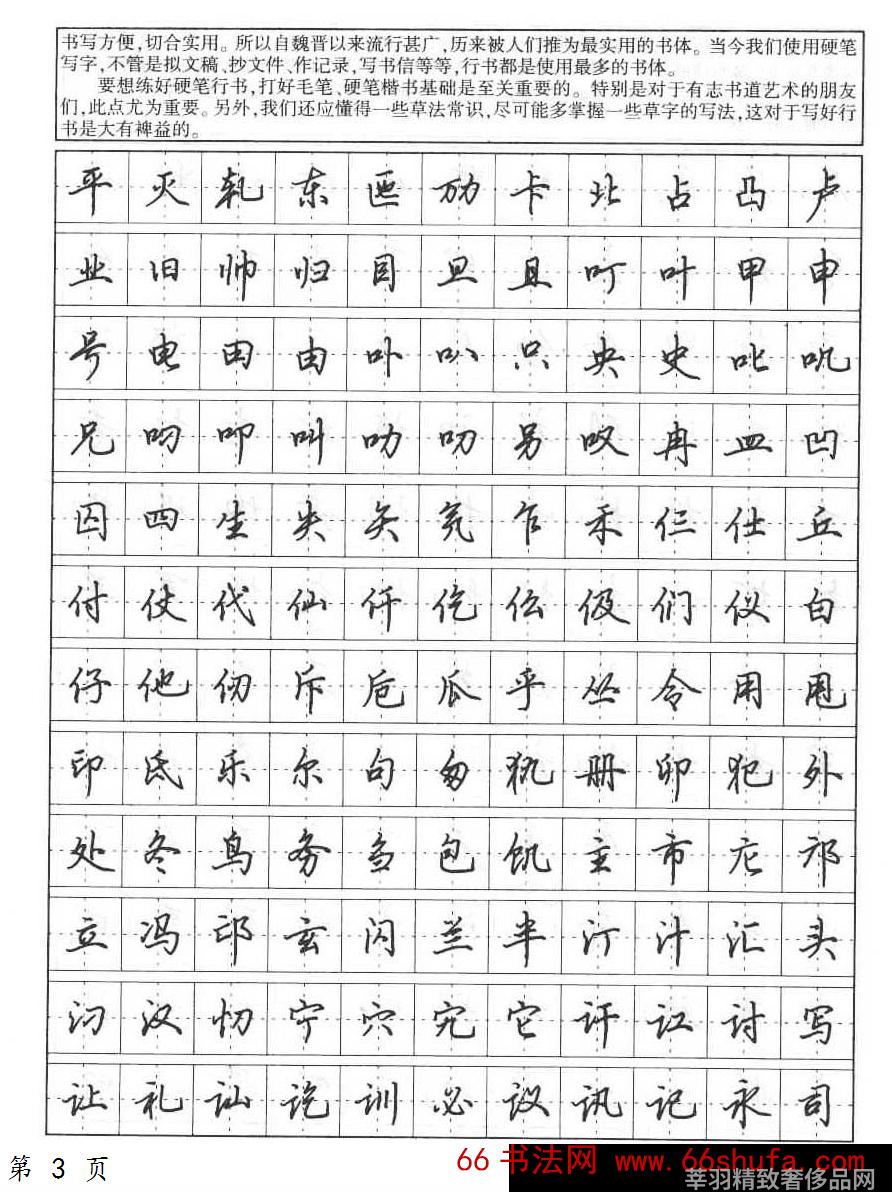 书写方便,切合实用。所以自魏晋以来流行甚广,历来被人们推为最实用的书体。当今我们使用硬笔
写字,不管是拟文稿、抄文件、作记录,写书信等等,行书都是使用最多的书体。
要想练好硬笔行书,打好毛笔、硬笔楷书基础是至关重要的。特别是对于有志书道艺术的朋友
们,此点尤为重要。另外,我们还应懂得一些草法常识,尽可能多掌握一些草字的写法,这对于写好行
书是大有裨益的。
平灭轧东匝劢卡北占凸卢
业旧帅归目旦且叮叶甲申
号电田由卟叭只央史叱叽
兄叼叩叫叻叨另叹冉皿凹
囚四生失矢氕乍禾仨仕丘
付仗代仙仟仡伝伋们仪白
仔他仞斥卮瓜乎丛令用甩
印氐乐尔句匆犰册卯犯外
处冬鸟务刍包饥主市庀邝
立冯邙玄闪兰半汀汁汇头
汈汉忉宁穴宄它讦讧讨写
让礼讪讫训必议讯记永司
第 3 页
66书法网 www.66shufa.com
莘羽精致奢侈品网